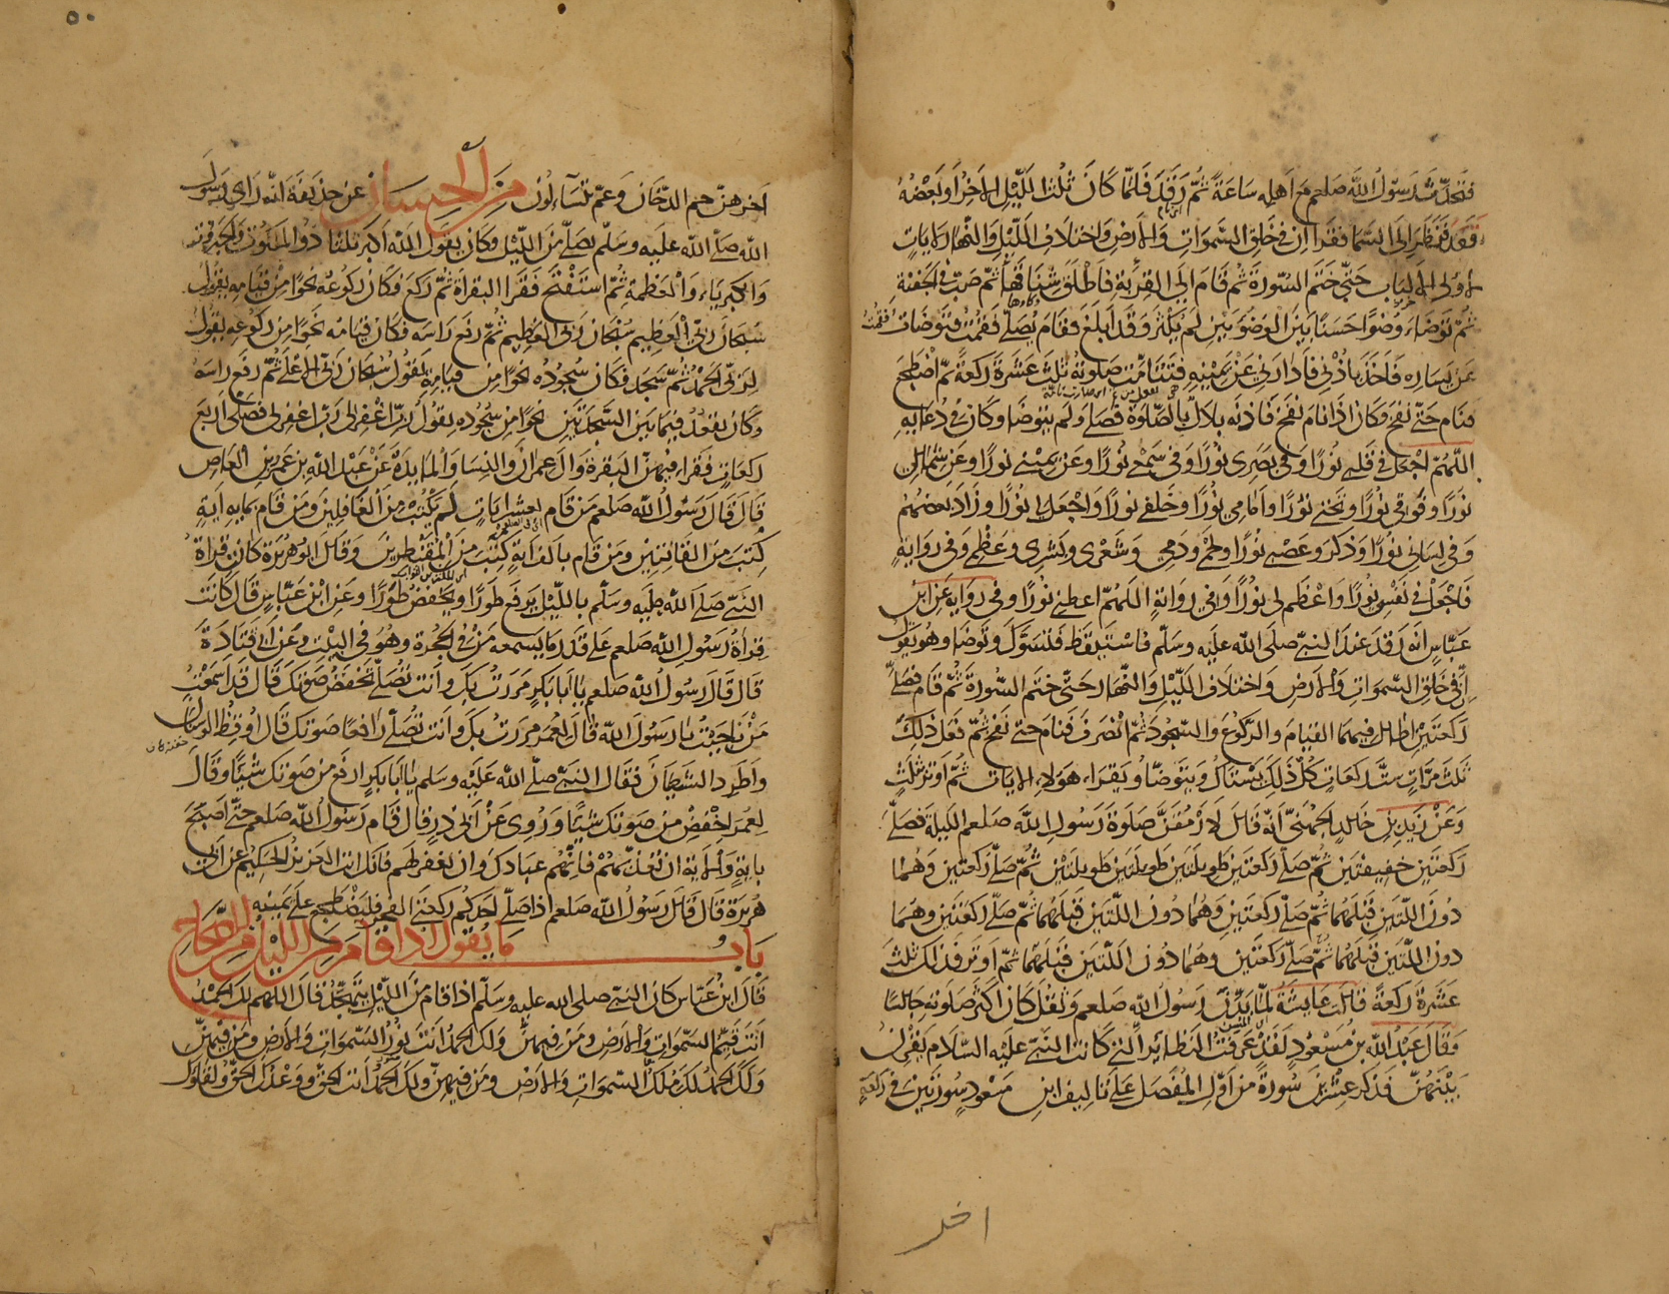 فتحدّث رسول الله صلعم مع اهله ساعة ثم رقد فلمّا كان ثلث الليل الاخر او بعضه
قعد فنظر الى السما فقرا ان في خلق السموات والارض واختلاف الليل والنهار لايات
لاولى الالباب حتى ختم السورة ثم قام الى القربة فاطلق شناقها ثم صب في الجفنة
ثم توضاء وضوا حسنا بين الوضوين لم يكثر وقد ابلغ فقام يصلي فقمت فتوضات فقمت
عن يساره فاخذ باذني فادارني عن يمينه فتتامّت صلوته ثلث عشرة ركعة ثم اضطجع
فنام حتى نفخ وكان اذا نام نفخ فاذنه بلال بالصلوة فصلى ولم يتوضا وكان في دعايه
اللهم اجعل في قلبي نورا وفي بصري نورا وفي سمعي نورا وعن يميني نورا وعن شمالي
نورا وفوقي نورا وتحتي نورا وامامي نورا وخلفي نورا واجعل لي نورا وزاد بعضهم
وفي لساني نورا وذكر وعصبي نورا ولحمي ودمي وشعري وبشري وعظمي وفي رواية
فاجعل في نفسي نورا واعظم لي نورا وفي رواية اللهم اعطني نورا وفي رواية عن ابن
عباس انه رقد عند النبي صلى الله عليه وسلم فاستيقظ فتسوّك وتوضا وهو يقول
ان في خلق السموات والارض واختلاف الليل والنهار حتى ختم السورة ثم قام فصلى
ركعتين اطال فيهما القيام والركوع والسجود ثم انصرف فنام حتى نفخ ثم فعل ذلك
ثلث مرات ست ركعات كل ذلك يستاك ويتوضا ويقراء هولاء الايات ثم اوتر بثلث
وعن زيد بن خالد الجهني انه قال لارمقن صلوة رسول الله صلعم الليلة فصلى
ركعتين خفيفتين ثم صلى ركعتين طويلتين طويلتين طويلتين ثم صلى ركعتين وهما
دون اللتين قبلهما ثم صلى ركعتين وهما دون اللتين قبلهما ثم صلى ركعتين وهما
دون اللتين قبلهما ثم صلى ركعتين وهما دون اللتين قبلهما ثم اوتر فذلك ثلث
عشرة ركعة قالت عايشة لمّا بدّن رسول الله صلعم وثقل كان اكثر صلوته جالسا
وقال عبد الله بن مسعود لقد عرفت النظائر التي كانت النبي عليه السلام يقرن
بينهن فذكر عشرين سورة من اول المفصل على تاليف ابن مسعود سورتين في ركعة
اخر
٥٠
اخرهن حم الدخان وعم يتساءلون من الحسان عن حذيفة انه راى رسول
الله صلى الله عليه وسلم يصلي من الليل وكان يقول الله اكبر ثلثا ذوالملكوت والجبروت
والكبرياء والعظمة ثم استفتح فقرا البقرة ثم ركع فكان ركوعه نحوا من قيامه يقول
سبحان ربي العظيم سبحان ربي العظيم ثم رفع راسه فكان قيامه نحوا من ركوعه يقول
لربي الحمد ثم سجد فكان سجوده نحوا من قيامه يقول سبحان ربي الاعلى ثم رفع راسه
وكان يقعد فيما بين السجدتين نحوا من سجوده يقول رب اغفرلى رب اغفرلى فصلى اربع
ركعات فقراء فيهن البقرة وال عمران والنسا والمايدة عن عبد الله بن عمرو بن العاص
قال قال رسول الله صلعم من قام بعشر ايات لم يكتب من الغافلين ومن قام بمايه اية
كتب من القانتين ومن قام بالف اية كتب من المقنطرين وقال ابو هريرة كان قراة
النبي صلى الله عليه وسلم بالليل يرفع طورا ويخفض طورا وعن ابن عباس قال كانت
قراة رسول الله صلعم على قدر ما يسمعه من في الحجرة وهو في البيت وعن ابي قتادة
قال قال رسول الله صلعم يا ابا بكر مررت بك وانت تصلي تخفض صوتك قال قد اسمعت
من ناجيت يا رسول الله قال لعمر مررت بك وانت تصلي رافعا صوتك قال اوقظ الوسنان
واطرد الشيطان فقال النبي صلى الله عليه وسلم يا ابا بكر ارفع من صوتك شيئا وقال
لعمر اخفض من صوتك شيئا وروى عن ابي ذر قال قام رسول الله صلعم حتى اصبح
باية والاية ان تعذبهم فانهم عبادك وان تغفر لهم فانك انت العزيز الحكيم عن ابى
هريرة قال قال رسول الله صلعم اذا صلى احدكم ركعتى الفجر فليضطجع على يمينه
باب ما يقول اذا قام من الليل من الصحاح
قال ابن عباس كان النبي صلى الله عليه وسلم اذا قام من الليل يتهجد قال اللهم لك الحمد
انت قيّم السموات والارض ومن فيهن ولك الحمد انت نور السموات والارض ومن فيهن
ولك الحمد لك ملك السموات والارض ومن فيهن ولك الحمد انت الحق ووعدك الحق ولقاؤك